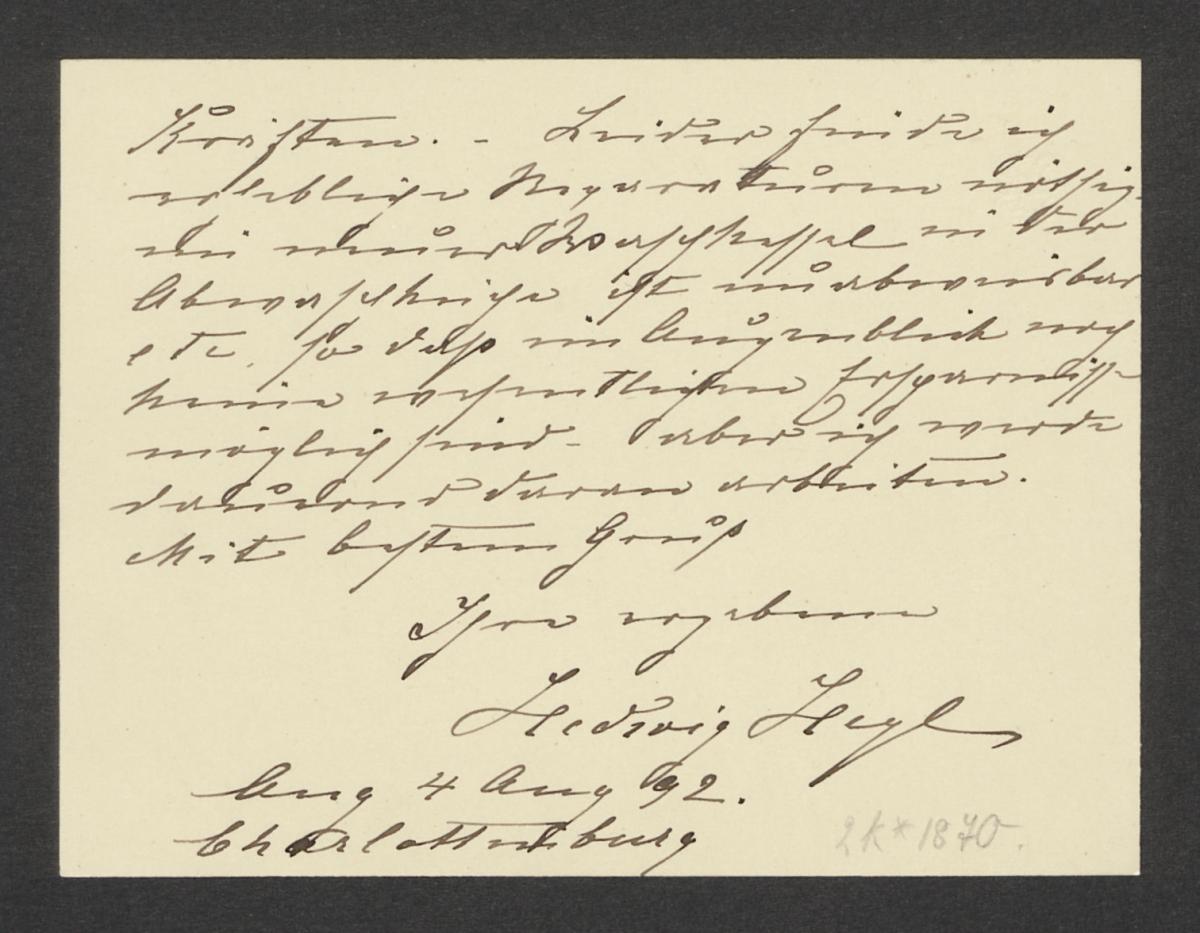 Kosten. - Leider finde ich
erhebliche Reparaturen nöthig
ein neuer Waschkessel in der
Abwaschküche ist unabweisbar
etc. so daß im Augenblick noch
keine wesentlichen Ersparnisse
möglich sind - aber ich werde
dauernd daran arbeiten.
Mit bestem Gruß
Ihre ergebene
Hedwig Heyl
4 Aug 92.
Charlottenburg
2K*1870.